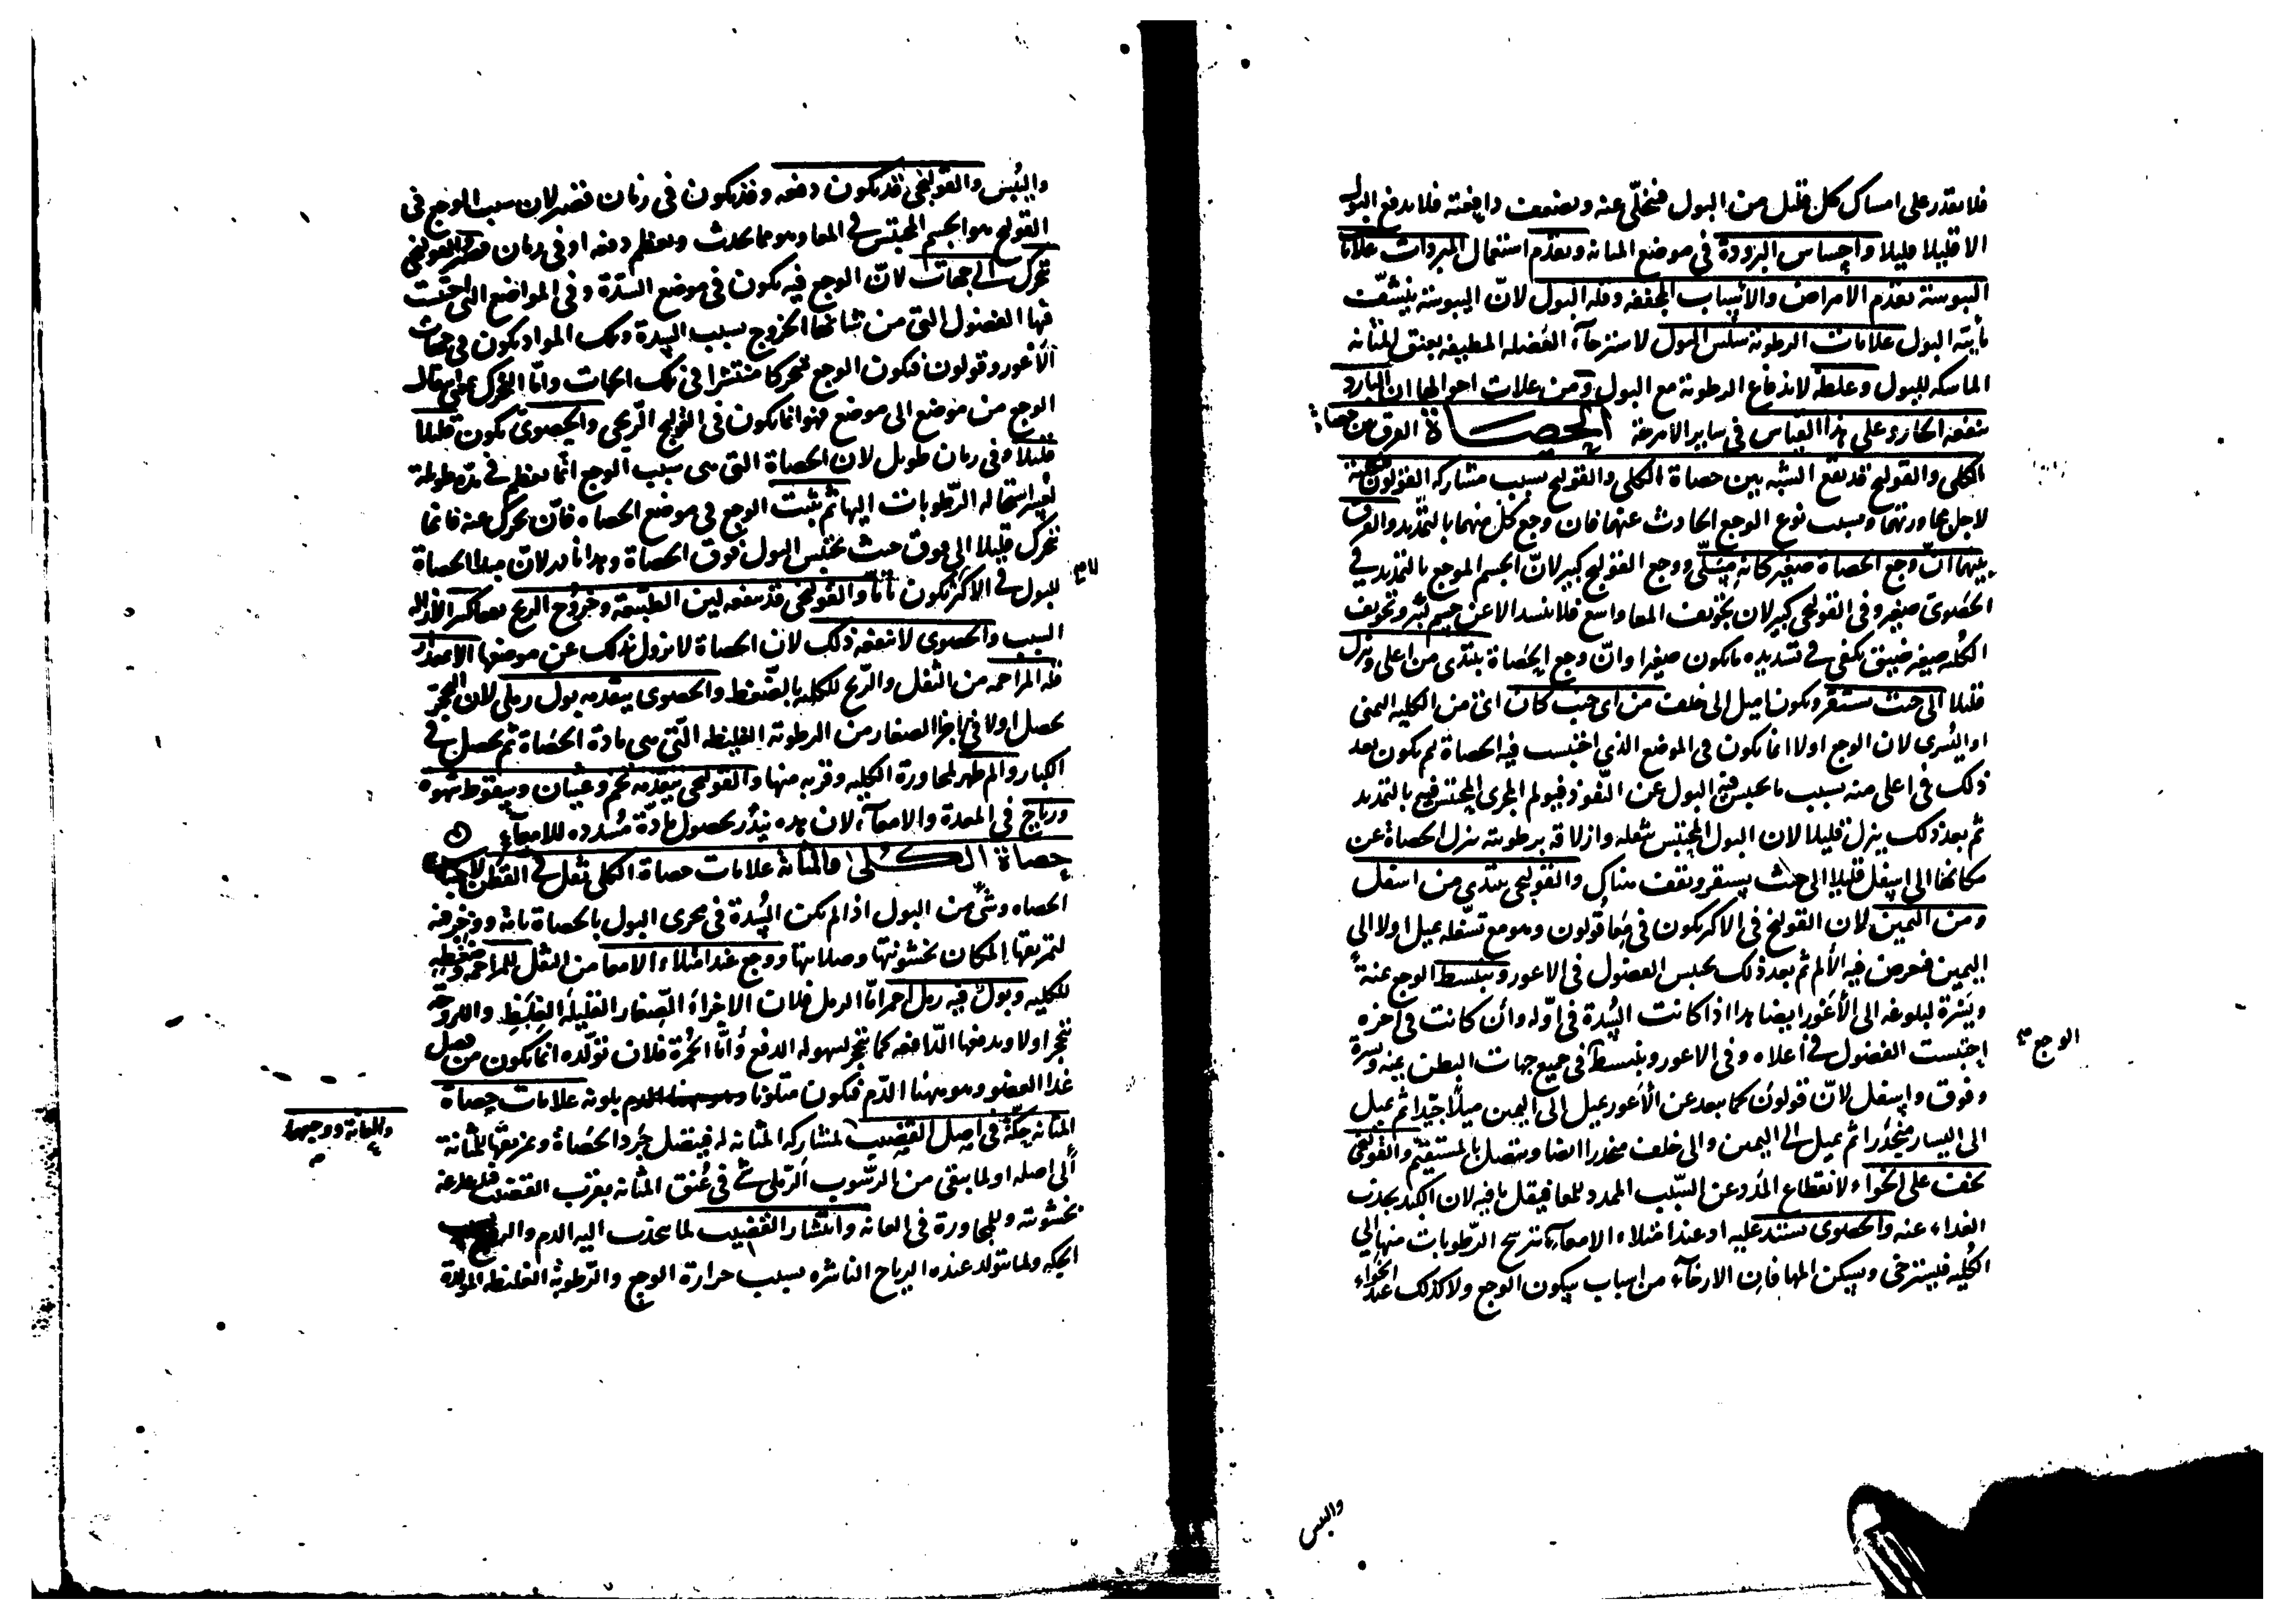 فلا يقدر على امساك كل قليل من البول فيخلّى عنه وتضعف دافعته فلا يدفع البول
الا قليلا قليلا واحساس البرودة فى موضع المثانه وتقدم استعمال المبردات علامات
اليبوسة تقدم الامراض والاسباب المجففه وقله البول لانّ اليبوسة ينشّف
مائية البول علامات الرطوبة سلس البول لاسترخاء العضله المطيفه بعنق المثانه
الماسكه للبول وغلظه لاندفاع الرطوبة مع البول ومن علامات احوالها ان البارد
ينفعه الحار وعلى هذا القياس فى ساير الامزجة الحصاة الفرق بين حصاة
الكلى والقولنج قد يقع الشبه بين حصاة الكلى والقولنج بسبب مشاركه القولون للكلية
لاجل مجاورتهما وبسبب نوع الوجع الحادث عنهما فان وجع كل منهما بالتمديد والفرق
بينهما انّ وجع الحصاة صغير كانه مسلّى ووجع القولنج كبير لانّ الجسم الموجع بالتمديد فى
الحصوى صغير وفى القولنجى كبير لان تجويف المعا واسع فلا ينسد الا عن جسم كبير وتجويف
الكليه صغير ضيق يكفى فى تسديده ما يكون صغيرا وانّ وجع الحصاة يبتدى من اعلى وينزل
قليلا الى حيث يستقر ويكون اميل الى خلف من اى جنب كان اى من الكليه اليمنى
او اليسرى لان الوجع اولا انما يكون فى الموضع الذى احتبست فيه الحصاة ثم يكون بعد
ذلك فى اعلى منه بسبب ما يحبس فيه البول عن النفوذ فيولم المجرى المحتبس فيه بالتمديد
ثم بعد ذلك ينزل قليلا لان البول المحتبس بثقله وازلاقه برطوبته ينزل الحصاة عن
مكانها الى اسفل قليلا الى حيث يستقر ويقف هناك والقولنجى يبتدى من اسفل
ومن اليمين لان القولنج فى الاكثر يكون فى معا قولون وهو مع تسفّله يميل اولا الى
اليمين فيعرض فيه الألم ثم بعد ذلك يحبس الفضول فى الاعور وينبسط الوجع عنة
ويسرة لبلوغه الى الأعور ايضا هذا اذا كانت السّدة فى اوّله وان كانت فى آخره
احتبست الفضول فى أعلاه وفى الاعور وينبسط فى جميع جهات البطن يمنه ويسرة
الوجع صح
وفوق واسفل لانّ قولون كما يبعد عن الأعور يميل الى اليمين ميلا جيّدا ثم يميل
الى اليسار منحدرا ثم يميل الى اليمين والى خلف منحدرا ايضا ويتصل بالمستقيم والقولنجى
يخف على الخواء لانقطاع المدد عن السّبب الممدد للمعا فيقل ما فيه لان الكبد يجذب
الغداء عنه والحصوى يشتد عليه او عند امتلاء الامعاء يترسح الرّطوبات منها الى
الكليه فيسترخى ويسكن المها فان الارخاء من اسباب سكون الوجع ولا كذلك عند الخواء
واليبس
واليُبس والقولنجى قد يكون دفعه وقد يكون فى زمان قصير لان سبب الوجع فى
القولنج هو الجسم المحتبس فى المعا وهو مما يحدث ويعظم دفعه او فى زمان قصير والقولنجى
يتحرك الى جهات لانّ الوجع فيه يكون فى موضع السّدة وفى المواضع التى احتبست
فيها الفضول التى من شانها الخروج بسبب السدة وتلك المواد يكون فى جهات
الأعور وقولون فيكون الوجع متحركا منتشرا فى تلك الجهات وامّا التحرك بمعنى انتقال
الوجع من موضع الى موضع فهو انما يكون فى القولنج الرّيحى والحصوى يكون قليلا
قليلا وفى زمان طويل لان الحصاة التى هى سبب الوجع انّما يعظم فى مدّه طويلة
لعسر استحاله الرّطوبات اليها ثم يثبت الوجع فى موضع الحصاه فانّ تحرك عنه فانما
يتحرك قليلا الى فوق حيث يحتبس البول فوق الحصاة وهذا نادر لانّ سدّ الحصاة
للبول فى الاكثر يكون تامّا والقولنجى قد ينفعه لين الطبيعة وخروج الريح نفعا كثيرا لازاله
السبب والحصوى لا ينفعه ذلك لان الحصاة لا يزول بذلك عن موضعها الا بمقدار
قله المزاحمه من الثفل والرّيح للكليه بالضّغط والحصوى يتقدمه بول رملى لان التحجر
يحصل اولا فى الاجزا الصغار من الرطوبة الغليظه التى هى مادة الحصاة ثم يحصل فى
الكبار والم ظهر لمجاورة الكليه وقربه منها والقولنجى يتقدّمه تخم وغثيان وسقوط شهوه
ورياح فى المعدة والامعاء لان هذه ينذر بحصول مادّة مُسدده للامعاء
حصاة الكلى والمثانة علامات حصاة الكلى ثقل فى القطن لاحتباس
الحصاه وشىء من البول اذا لم تكن السّدة فى مجرى البول بالحصاة تامّه ووخز فيه
لتمزيقها المكان بخشونتها وصلابتها ووجع عند امتلاء الامعا من الثفل للمزاحمه وضغطه
للكليه وبول فيه رمل احمر امّا الرمل فلان الاجزاء الصّغار القليله الغلظ واللزوجة
تتحجر اولا ويدفعها الدّافعه كما تتحجر لسهوله الدفع وأمّا الحُمرة فلان تولّده انما يكون من فضل
غذا العضو وهو ههنا الدّم فتكون متلونا بلونه علامات حصاة
المثانه حكّة فى اصل القضيب لمشاركه المثانه له فيتصل جَرد الحصاة وتمزيقها للمثانة
وللعانة ووجعها
الى اصله او لما يبقى من الرّسوب الرّملى فى عُنق المثانه بقرب القضيب
بخشونته وللمجاورة فى العانه وانتشار القضيب لما ينجذب اليه الدم والروح بسبب
الحكه ولما يتولد عنده الرياح الناشره بسبب حرارة الوجع والرّطوبة الغليظه المولدة